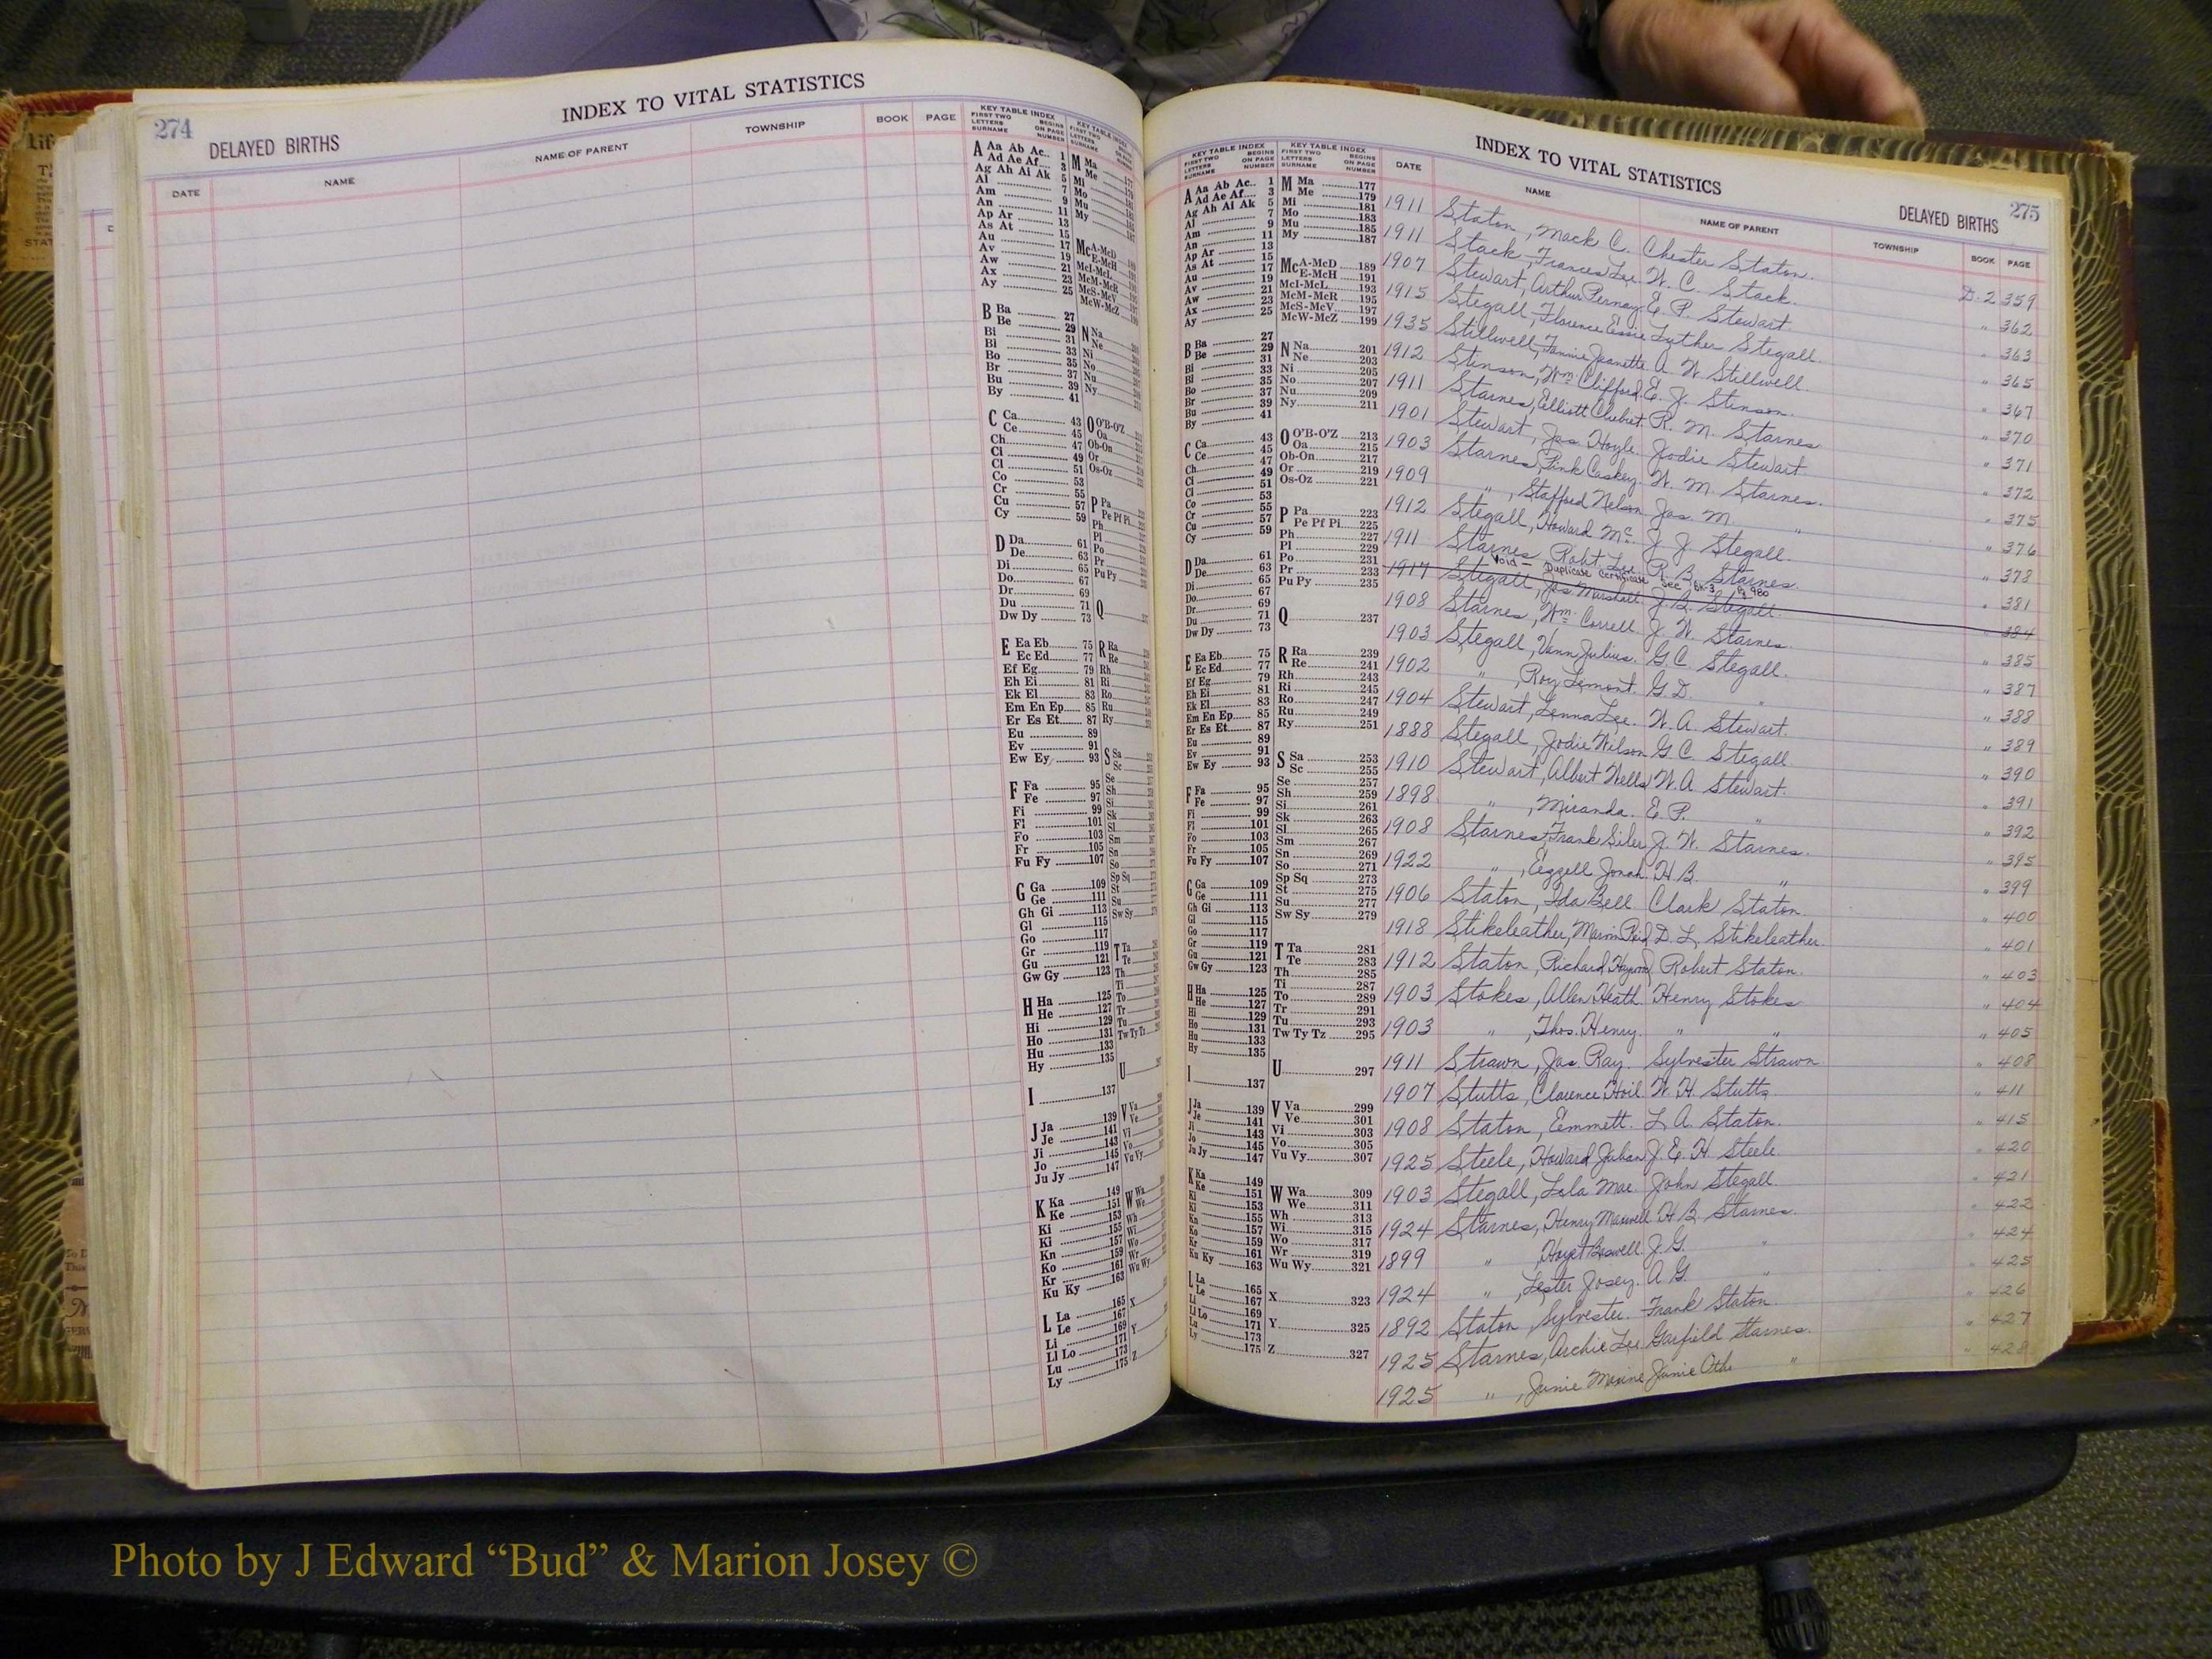 274
INDEX TO VITAL STATISTICS
DELAYED BIRTHS
DATE NAME NAME OF PARENT TOWNSHIP BOOK PAGE
KEY TABLE INDEX
FIRST TWO LETTERS SURNAME BEGINS ON PAGE NUMBER
A Aa Ab Ac 1
Ad Ae Af 3
Ag Ah Ai Ak 5
Al 7
Am 9
An 11
Ap Ar 13
As At 15
Au 17
Av 19
Aw 21
Ax 23
Ay 25
B Ba 27
Be 29
Bi 31
Bl 33
Bo 35
Br 37
Bu 39
By 41
C Ca 43
Ce 45
Ch 47
Ci 49
Cl 51
Co 53
Cr 55
Cu 57
Cy 59
D Da 61
De 63
Di 65
Do 67
Dr 69
Du 71
Dw Dy 73
E Ea Eb 75
Ec Ed 77
Ef Eg 79
Eh Ei 81
Ek El 83
Em En Ep 85
Er Es Et 87
Eu 89
Ev 91
Ew Ey 93
F Fa 95
Fe 97
Fi 99
Fl 101
Fo 103
Fr 105
Fu Fy 107
G Ga 109
Ge 111
Gh Gi 113
Gl 115
Go 117
Gr 119
Gu 121
Gw Gy 123
H Ha 125
He 127
Hi 129
Ho 131
Hu 133
Hy 135
I 137
J Ja 139
Je 141
Ji 143
Jo 145
Ju Jy 147
K Ka 149
Ke 151
Ki 153
Kl 155
Kn 157
Ko 159
Kr 161
Ku Ky 163
L La 165
Le 167
Li 169
Ll Lo 171
Lu 173
Ly 175
INDEX TO VITAL STATISTICS
DELAYED BIRTHS 275
KEY TABLE INDEX
FIRST TWO LETTERS SURNAME BEGINS ON PAGE NUMBER
M Ma 177
Me 179
Mi 181
Mo 183
Mu 185
My 187
Mc A-McD 189
E-McH 191
McI-McL 193
McM-McR 195
McS-McV 197
McW-McZ 199
N Na 201
Ne 203
Ni 205
No 207
Nu 209
Ny 211
O O'B-O'Z 213
Oa 215
Ob-On 217
Or 219
Os-Oz 221
P Pa 223
Pe Pf Pi 225
Ph 227
Pl 229
Po 231
Pr 233
Pu Py 235
Q 237
R Ra 239
Re 241
Rh 243
Ri 245
Ro 247
Ru 249
Ry 251
S Sa 253
Sc 255
Se 257
Sh 259
Si 261
Sk 263
Sl 265
Sm 267
Sn 269
So 271
Sp Sq 273
St 275
Su 277
Sw Sy 279
T Ta 281
Te 283
Th 285
Ti 287
To 289
Tr 291
Tu 293
Tw Ty Tz 295
U 297
V Va 299
Ve 301
Vi 303
Vo 305
Vu Vy 307
W Wa 309
We 311
Wh 313
Wi 315
Wo 317
Wr 319
Wu Wy 321
X 323
Y 325
Z 327
DATE NAME NAME OF PARENT TOWNSHIP BOOK PAGE
1911 Staton, Mack C. Chester Staton. D-2 359
1911 Stack, Frances Lee. W. C. Stack. " 362
1907 Stewart, Arthur Pernay. E. P. Stewart. " 363
1915 Stegall, Florence Essie. Luther Stegall. " 365
1935 Stillwell, Fannie Jeanette. A. W. Stillwell. " 367
1912 Stinson, Wm. Clifford. E. J. Stinson. " 370
1911 Starnes, Elliott R. M. Starnes " 371
1901 Stewart, Jas. Hoyle. Jodie Stewart " 372
1903 Starnes, Pink Caskey. W. M. Starnes. " 375
1909 " , Stafford Nelson Jas. M. " " 376
1912 Stegall, Howard Mc. J. J. Stegall. " 378
1911 Starnes, Robt. Lee. R. B. Starnes. " 381
Void - Duplicate Certificate See Bk-3 Pg 980
1917 Stegall, Jas Marshall. J. B. Stegall. " 384
1908 Starnes, Wm. Correll. J. W. Starnes. " 385
1903 Stegall, Vann Julius. G. C. Stegall. " 387
1902 " , Roy Lemont. G. D. " " 388
1904 Stewart, Lenna Lee. W. A. Stewart. " 389
1888 Stegall, Jodie Wilson G. C. Stegall " 390
1910 Stewart, Albert Wells W. A. Stewart. " 391
1898 " , Miranda. E. P. " " 392
1908 Starnes, Frank Siler J. W. Starnes. " 395
1922 " , Ezzell Jonah H. B. " " 399
1906 Staton, Ida Bell Clark Staton. " 400
1918 Stikeleather, Marvin Reid D. L. Stikeleather. " 401
1912 Staton, Richard Haywood. Robert Staton. " 403
1903 Stokes, Allen Heath. Henry Stokes " 404
1903 " , Thos. Henry. " " " 405
1911 Strawn, Jas. Ray. Sylvester Strawn. " 408
1907 Stutts, Clarence Hoil. W. H. Stutts. " 411
1908 Staton, Emmett. L. A. Staton. " 415
1925 Steele, Howard Julian J. E. H. Steele. " 420
1903 Stegall, Lela Mae. John Stegall. " 421
1924 Starnes, Henry Maxwell. H. B. Starnes. " 422
1899 " Hoyet Boswell. J. G. " " 424
1924 " , Lester Josey. A. G. " " 425
1892 Staton, Sylvester. Frank Staton. " 426
1925 Starnes, Archie Lee. Garfield Starnes. " 427
1925 " , Janie Maxine, Janie Othe " " 428
Photo by J Edward “Bud” & Marion Josey ©